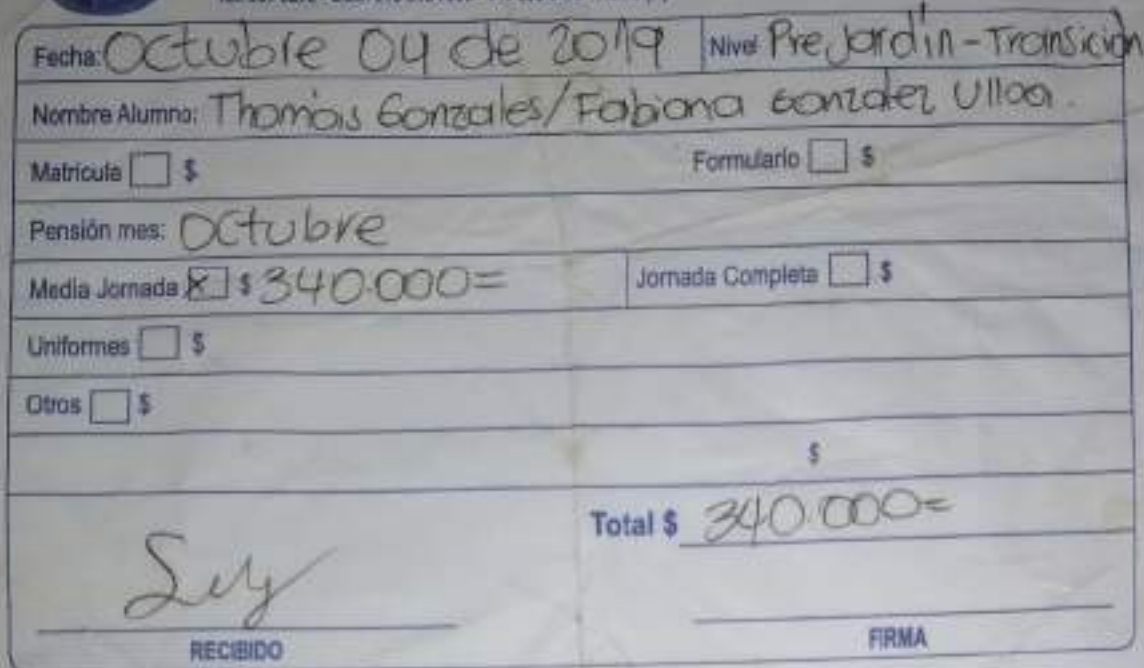 Fecha: Octubre 04 de 2019 Nivel Pre Jardín - Transición
Nombre Alumno: Thomás Gonzales/Fabiana Gonzalez Ulloa.
Matrícula $ Formulario $
Pensión mes: Octubre
Media Jornada X $ 340.000= Jornada Completa $
Uniformes $
Otros $
$
Total $ 340.000=
RECIBIDO FIRMA